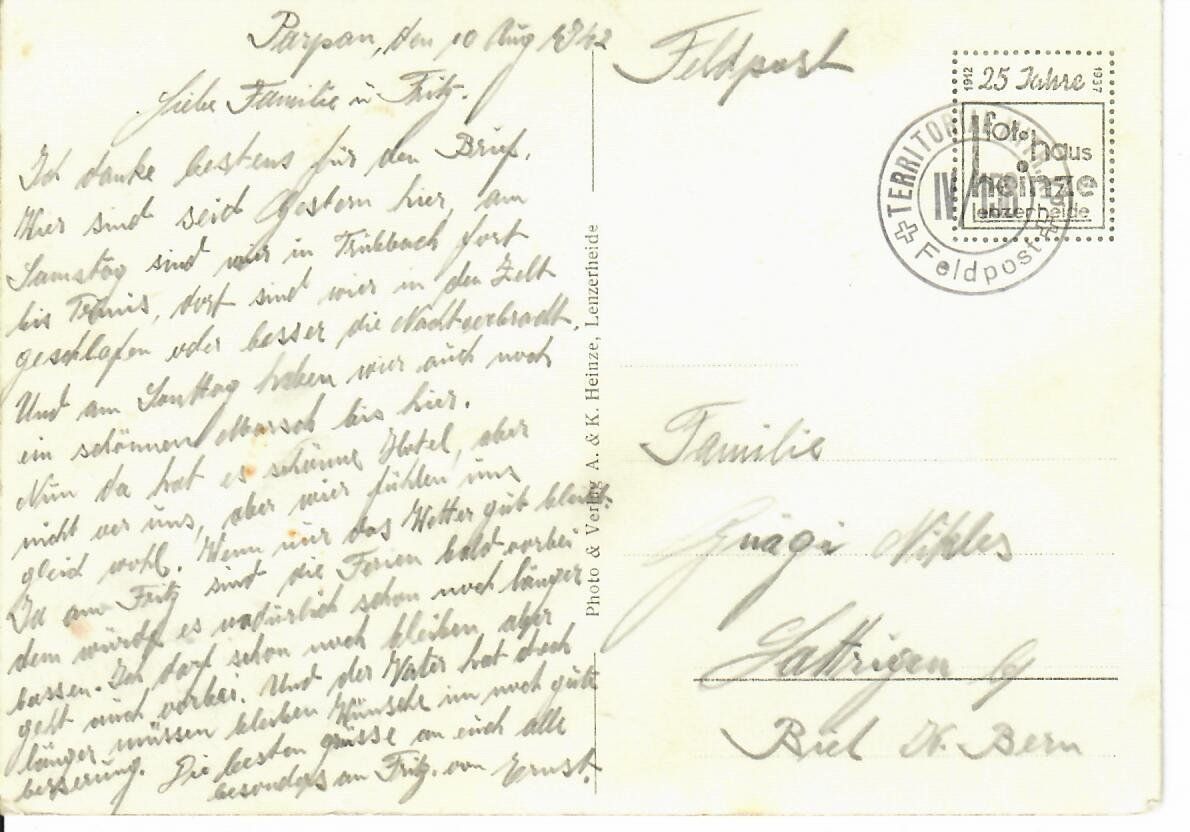 Parpan, den 10 Aug 1942
Liebe Familie u Fritz.
Ich danke bestens für den Brief.
Wir sind seid Gestern hier, am
Samstag sind wir in Trübbach fort
bis dort sind wir in den Zelt
geschlafen oder besser die Nacht verbracht.
Und am Sonttag haben wir auch noch
ein schönnen Marsch bis hier.
Nun da hat es schönne Hotel, aber
nicht ver uns, aber wir fühlen uns
gleich wohl. Wenn nur das Wetter gut bleibt.
Ja am Fritz sind die Ferien bald vorbei
dem würde es nadürlich schon noch länger
bassen. Ich darf schon noch bleiben aber
geht auch vorbei. Und der Vater hat doch
länger müssen bleiben Wünsche im noch güte
besserung. Die besten grüsse an euch alle
besonders an Fritz. von Ernst.
Photo & Verlag A. & K. Heinze, Lenzerheide
Feldpost
1912 25 Jahre 1937
fotohaus
heinze
lenzerheide
TERRITORIAL
IV
Feldpost
Familie
Gnägi
Lattrigen b/
Biel Kt. Bern